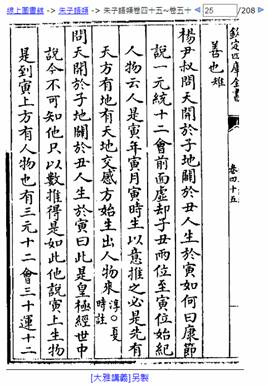 線上圖書館 -> 朱子語類 -> 朱子語類卷四十五~卷五十 25 /208
欽定四庫全書
卷四十五
善也雉
楊尹叔問天開於子地闢於丑人生於寅如何曰康節
說一元統十二會前面虛却子丑兩位至寅位始紀
人物云人是寅年寅月寅時生以意推之必是先有
天方有地有天地交感方始生出人物來淳○夏時
問天開於子地闢於丑人生於寅曰此是皇極經世中
說今不可知他只以數推得是如此他說寅上生物
是到寅上方有人物也有三元十二會三十運十二
[大雅講義]另製